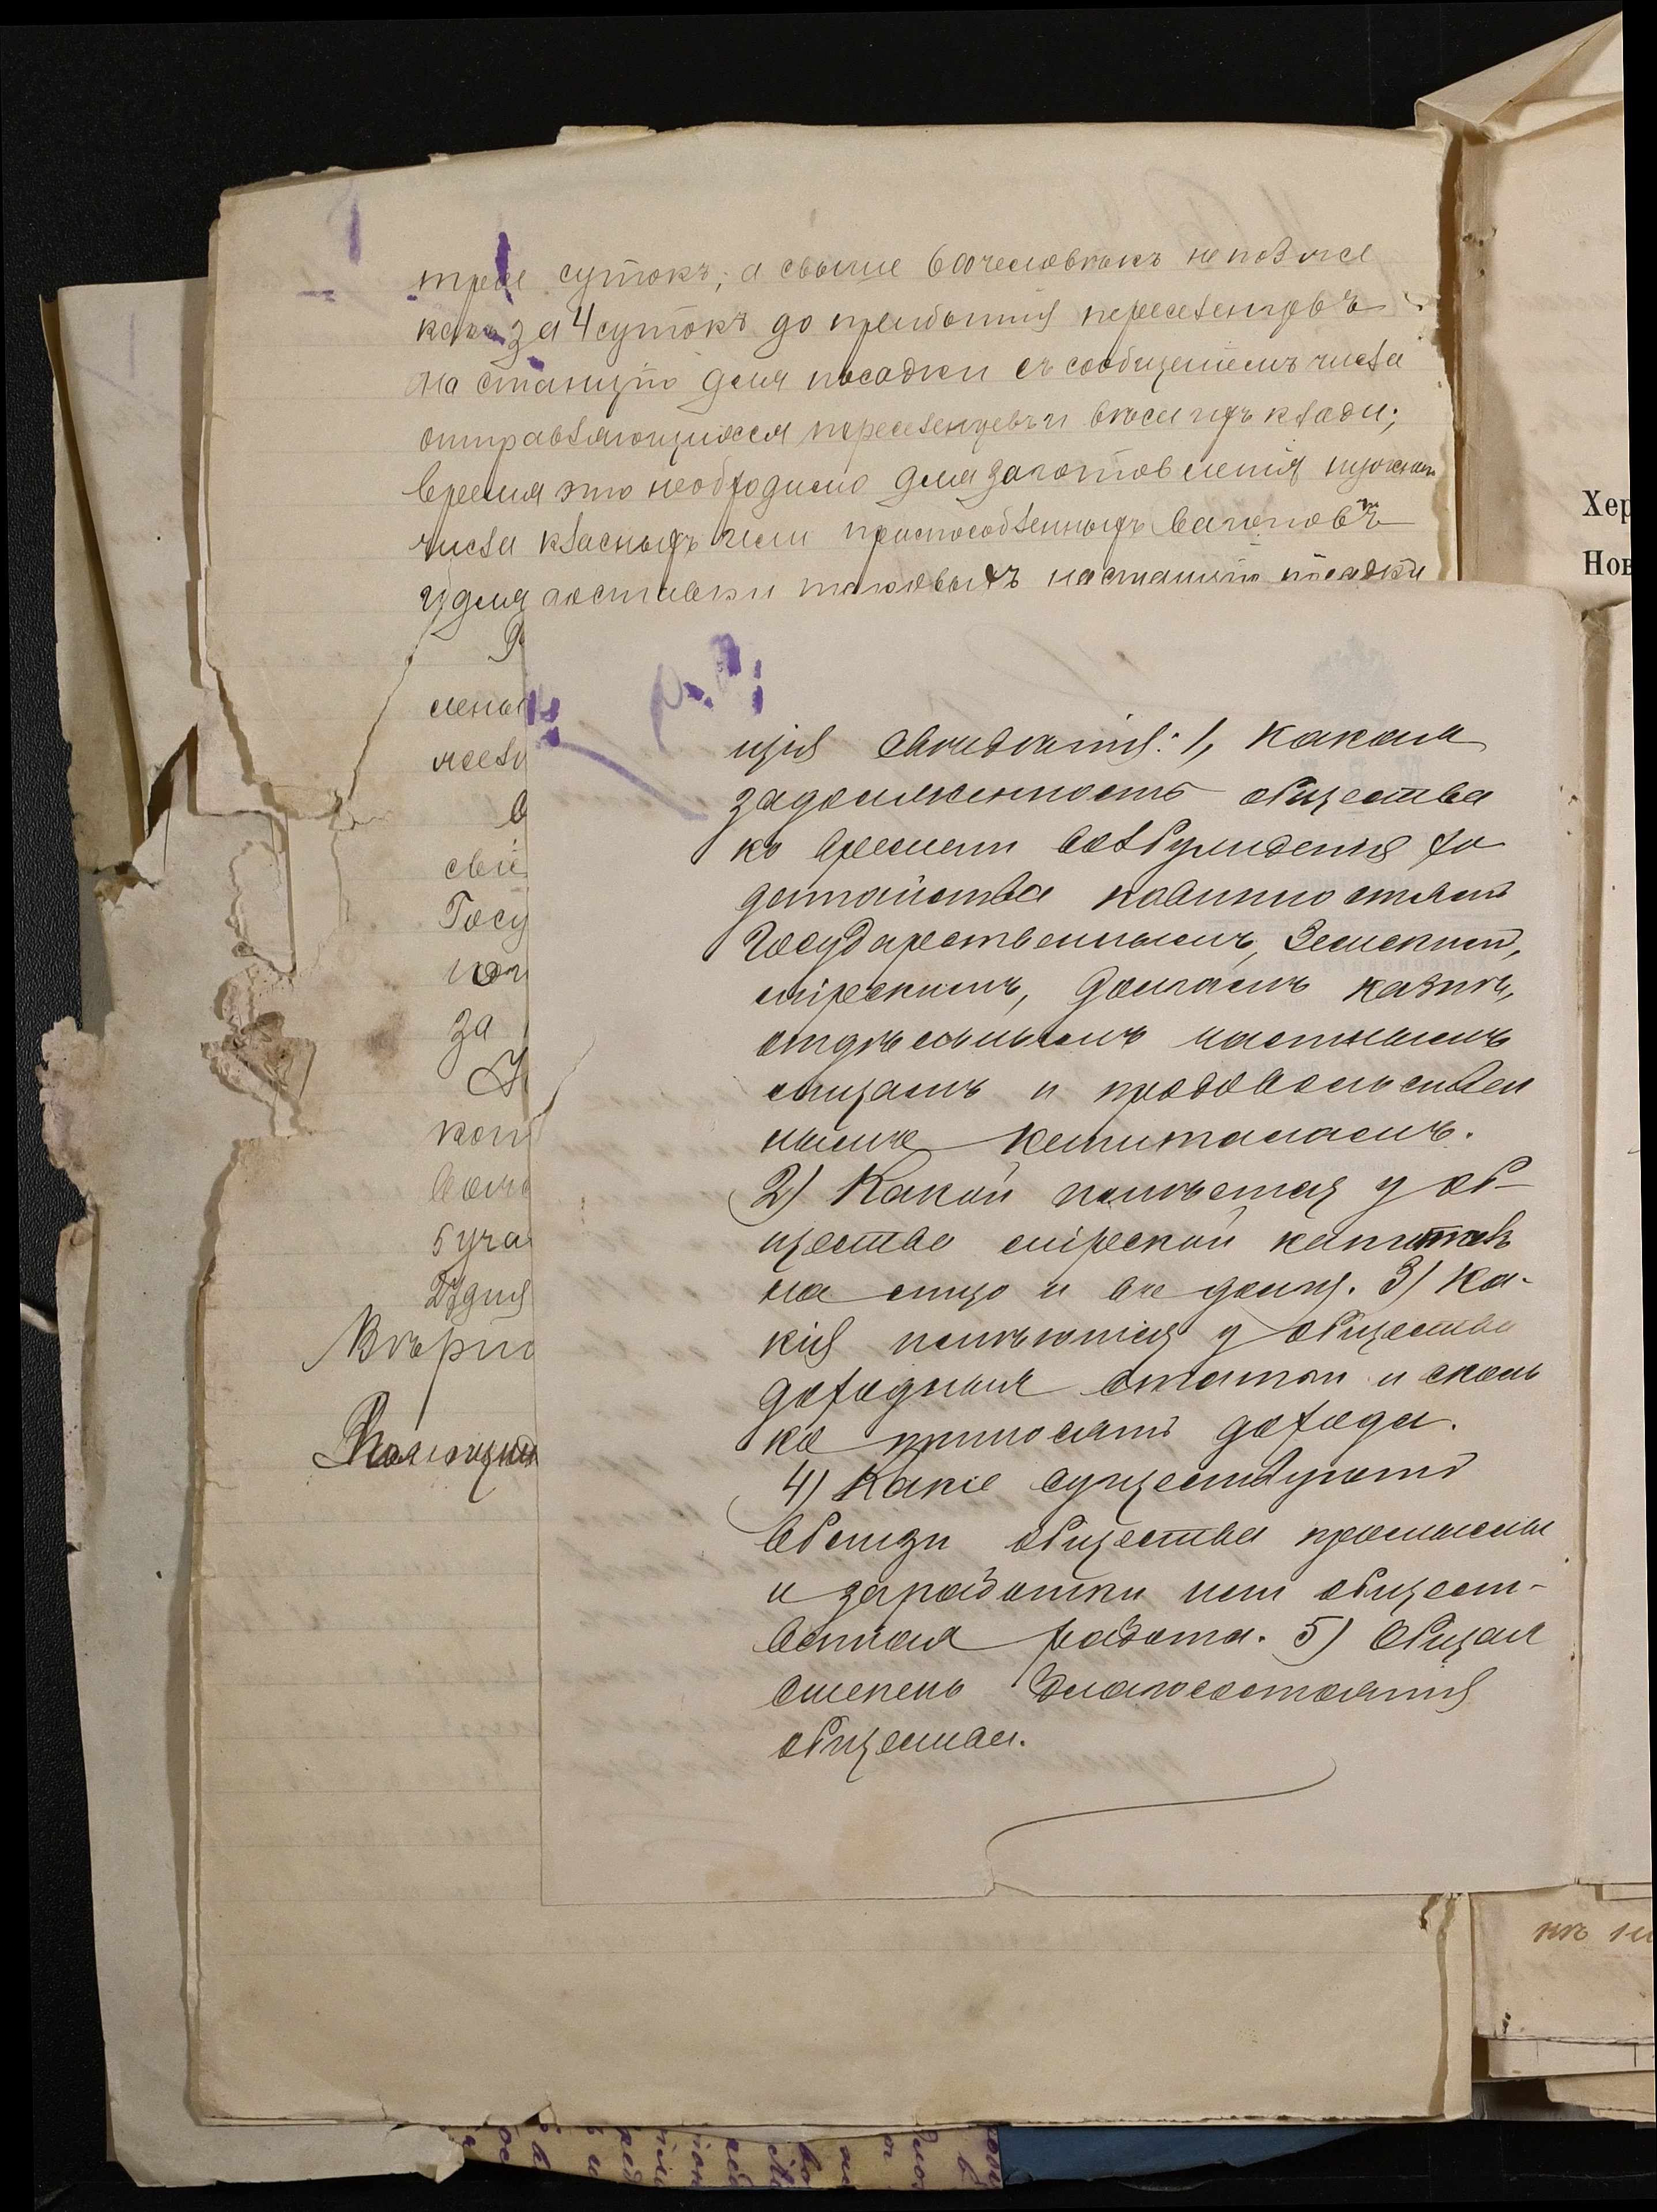 трое сутокъ, а свыше 600 человѣкъ не позже
какъ за 4 сутокъ до прибытія переселенцевъ
на станцію для посадки съ сообщеніемъ числа
отправляющихся переселенцевъ и вѣса ихъ клади;
время это необходимо для заготовленія нужнаго
числа классныхъ или приспособленныхъ вагоновъ
и для доставки таковыхъ на станцію посадки
щія свѣдѣнія: 1, Какая
задолженность общества
ко времени возбужденія хо
датайства повинностямъ
Государственнымъ, Земскимъ,
мірскимъ, долгамъ казнѣ,
отдѣльнымъ частнымъ
лицамъ и продовольствен
нымъ капиталамъ.
2) Какой имѣется у об-
щества мірской капиталъ
на лицо и въ долгу. 3) Ка-
кія имѣются у общества
доходныя статьи и сколь
ко приносятъ дохода.
4) Какіе существуютъ
вблизи общества промыслы
и заработки или общест-
венная работа. 5) Общая
степень благосостоянія
общества.
свѣ
Госу
за
Вѣрно
Хер
Нов